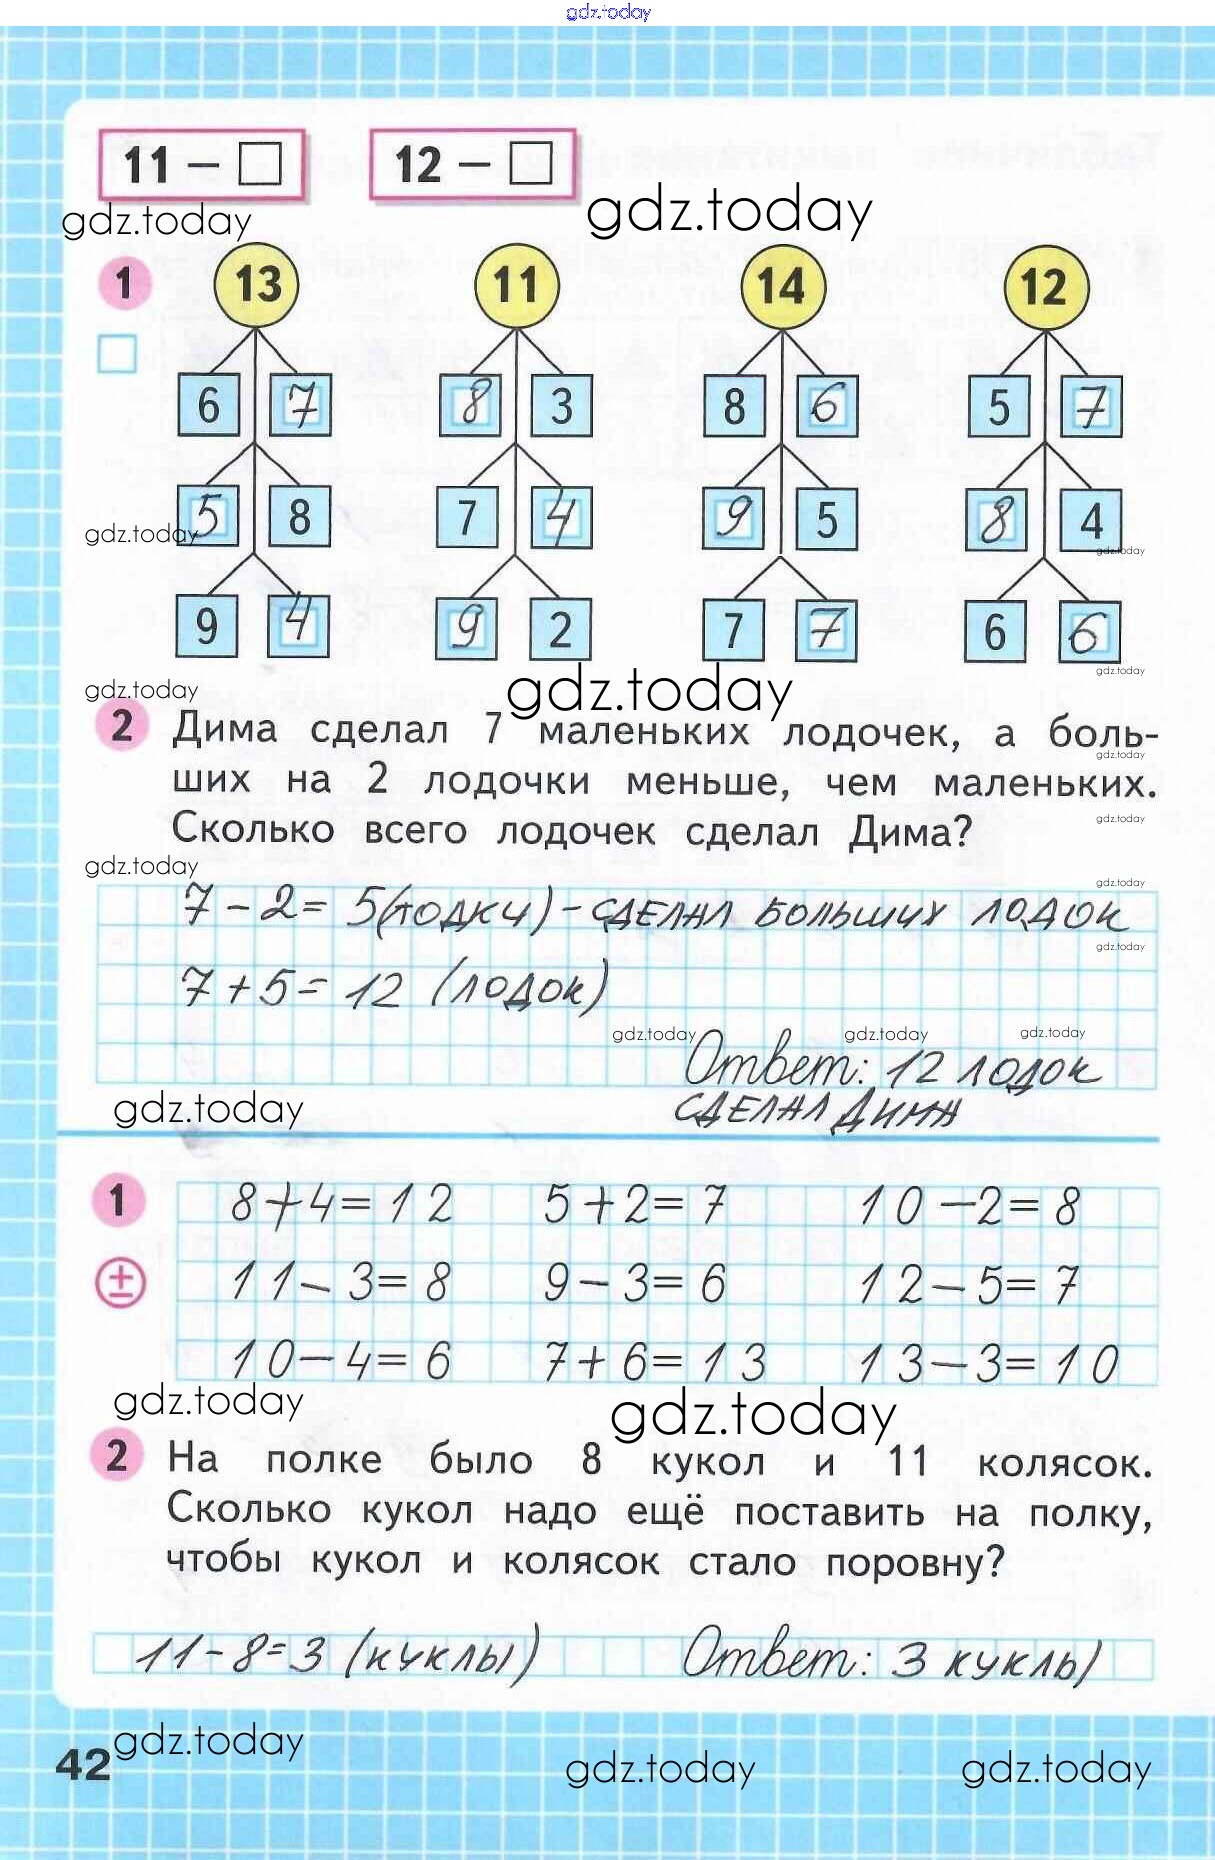 gdz.today
11 − □ 12 − □
gdz.today gdz.today
1 13 11 14 12
6 7 8 3 8 6 5 7
5 8 7 4 9 5 8 4
gdz.today gdz.today
9 4 9 2 7 7 6 6
gdz.today gdz.today gdz.today
2 Дима сделал 7 маленьких лодочек, а боль-
gdz.today
ших на 2 лодочки меньше, чем маленьких.
gdz.today
Сколько всего лодочек сделал Дима?
gdz.today gdz.today
7 − 2 = 5 (лодки) − СДЕЛАЛ БОЛЬШИХ ЛОДОК
gdz.today
7 + 5 = 12 (лодок)
gdz.today gdz.today gdz.today
Ответ: 12 лодок
gdz.today СДЕЛАЛ ДИМА
1 8+4=12 5+2=7 10−2=8
± 11−3=8 9−3=6 12−5=7
10−4=6 7+6=13 13−3=10
gdz.today gdz.today
2 На полке было 8 кукол и 11 колясок.
Сколько кукол надо ещё поставить на полку,
чтобы кукол и колясок стало поровну?
11−8=3 (куклы) Ответ: 3 куклы
gdz.today
42 gdz.today gdz.today